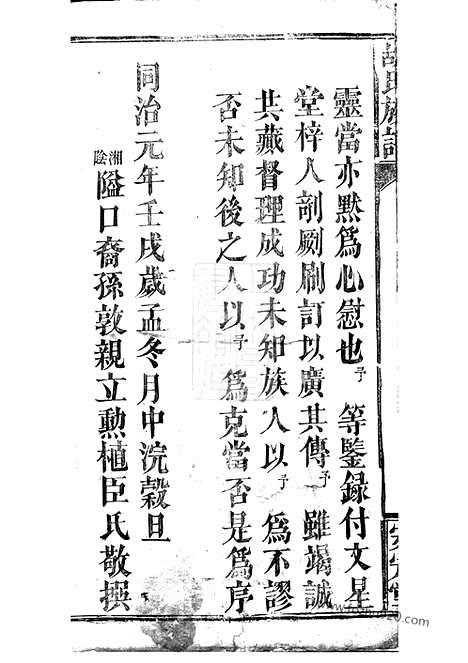 胡氏族譜
靈當亦默爲心慰也予等鑒録付文星
堂梓人剞劂刷訂以廣其傳予雖竭誠
共藏督理成功未知族人以予爲不謬
否未知後之人以予爲克當否是爲序
同治元年壬戌歲孟冬月中浣穀旦
湘陰隘口裔孫敦親立勲植臣氏敬撰